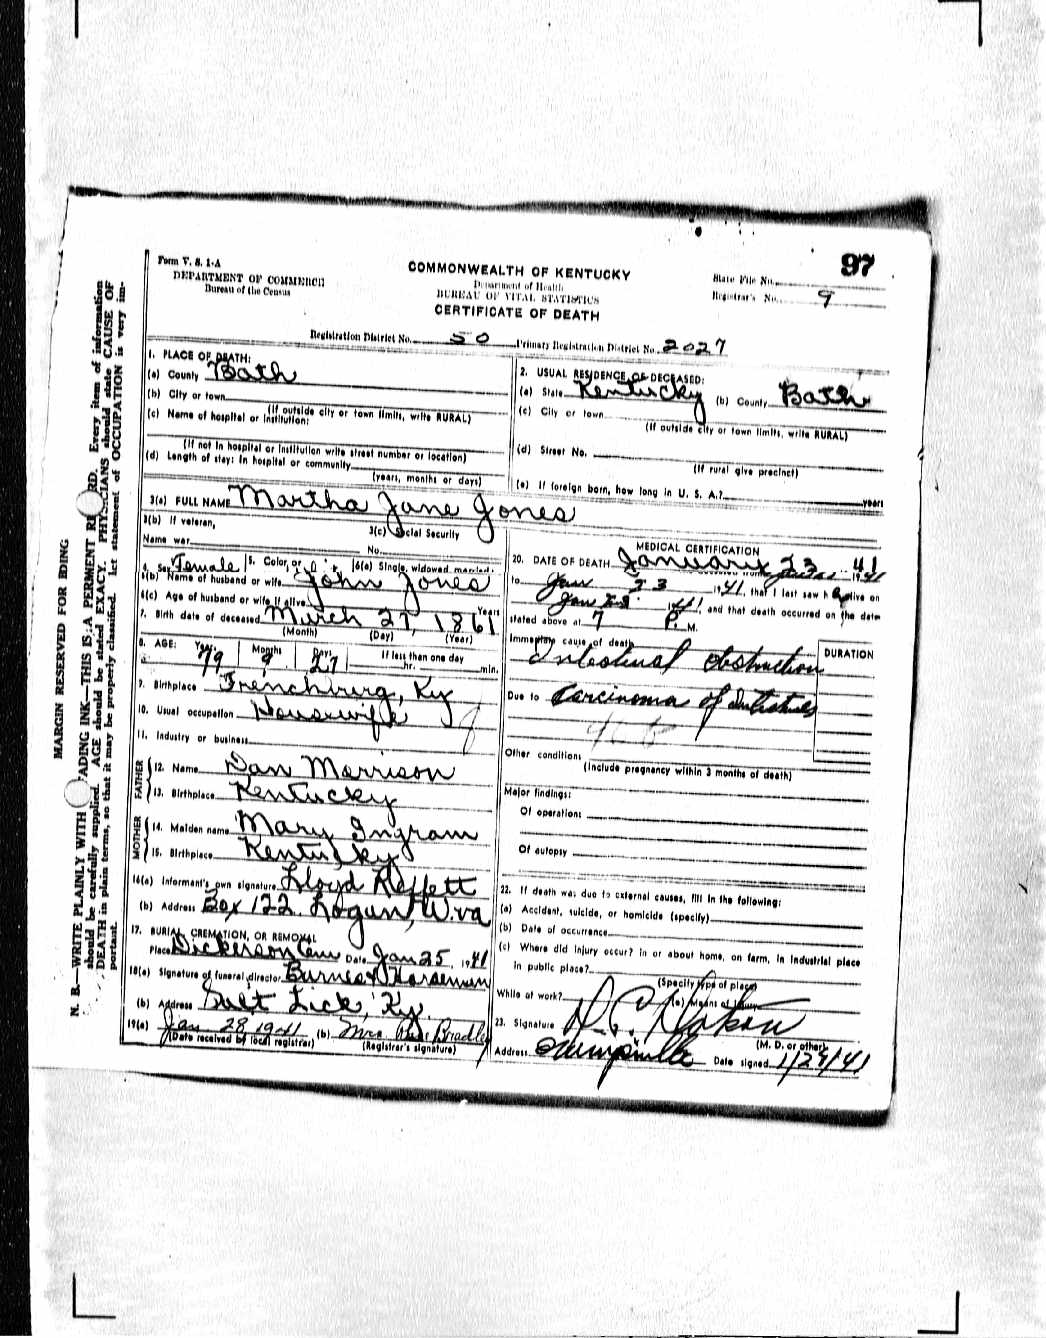 97
Form V. S. 1-A
DEPARTMENT OF COMMERCE
Bureau of the Census
COMMONWEALTH OF KENTUCKY
Department of Health
BUREAU OF VITAL STATISTICS
CERTIFICATE OF DEATH
State File No.
Registrar's No. 9
Registration District No. 50 Primary Registration District No. 2027
1. PLACE OF DEATH:
(a) County Bath
(b) City or town
(If outside city or town limits, write RURAL)
(c) Name of hospital or institution:
(If not in hospital or institution write street number or location)
(d) Length of stay: In hospital or community
(years, months or days)
2. USUAL RESIDENCE OF DECEASED:
(a) State Kentucky (b) County Bath
(c) City or town
(If outside city or town limits, write RURAL)
(d) Street No.
(If rural give precinct)
(e) If foreign born, how long in U. S. A.? years
3(a) FULL NAME Martha Jane Jones
3(b) If veteran,
Name war
3(c) Social Security
No.
4. Sex Female 5. Color or 6(a) Single, widowed, married,
6(b) Name of husband or wife John Jones
6(c) Age of husband or wife if alive Years
7. Birth date of deceased March 27, 1861
(Month) (Day) (Year)
8. AGE: Years 79 Months 9 Days 27 If less than one day
hr. min.
9. Birthplace Frenchburg, Ky
10. Usual occupation Housewife
11. Industry or business
FATHER
12. Name Dan Morrison
13. Birthplace Kentucky
MOTHER
14. Maiden name Mary Ingram
15. Birthplace Kentucky
16(a) Informant's own signature Lloyd
(b) Address Box 122 Logan, W.va
17. BURIAL, CREMATION, OR REMOVAL
Place Dickerson Cem Date Jan 25, 1941
18(a) Signature of funeral director
(b) Address Salt Lick, Ky
19(a) Jan 28 1941 (b) Mrs. Bradley
(Date received by local registrar) (Registrar's signature)
MEDICAL CERTIFICATION
20. DATE OF DEATH January 23 41
to Jan 23 1941, that I last saw h alive on
Jan 1941, and that death occurred on the date
stated above at 7 P. M.
Immediate cause of death
Intestinal obstruction
DURATION
Due to Carcinoma of Intestines
Other conditions
(Include pregnancy within 3 months of death)
Major findings:
Of operations
Of autopsy
22. If death was due to external causes, fill in the following:
(a) Accident, suicide, or homicide (specify)
(b) Date of occurrence
(c) Where did injury occur? In or about home, on farm, in industrial place
in public place?
(Specify type of place)
While at work? (e) Means of injury
23. Signature
(M. D. or other)
Address Date signed 1/29/41
MARGIN RESERVED FOR BINDING
N. B.—WRITE PLAINLY WITH ADING INK—THIS IS A PERMENT RD. Every item of information
should be carefully supplied. AGE should be stated EXACY. PHYSICIANS should state CAUSE OF
DEATH in plain terms, so that it may be properly classified. statement of OCCUPATION is very im-
portant.